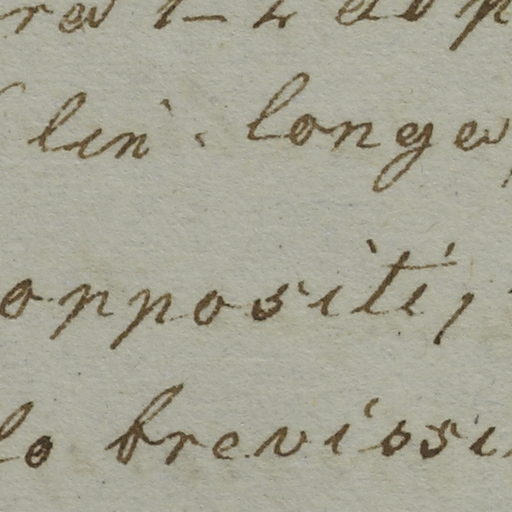 lin. longa
oppositi,
lo brevissi